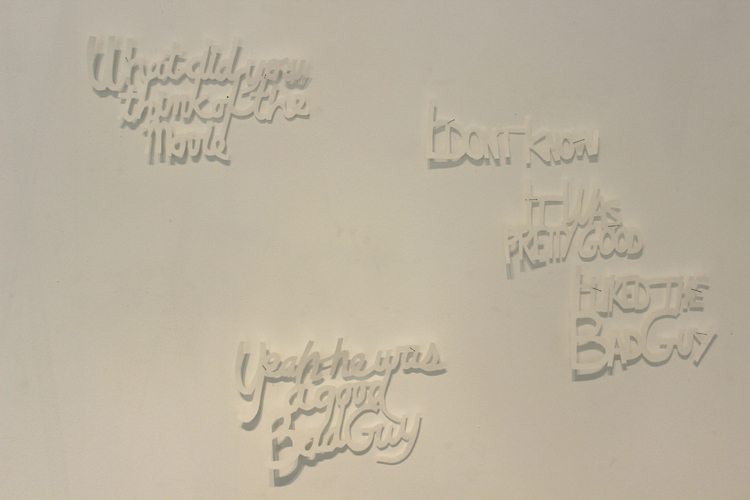 What did you
think of the
Movie
I DONT KNOW
IT WAS
PRETTY GOOD
I LIKED THE
BAD GUY
Yeah he was
a good
Bad Guy